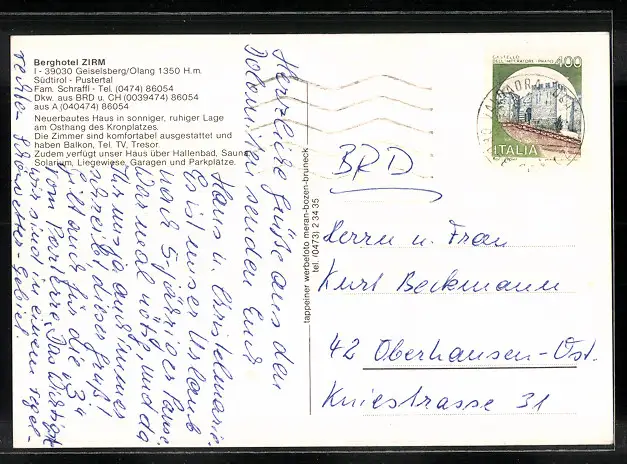 Berghotel ZIRM
I - 39030 Geiselsberg/Olang 1350 H.m.
Südtirol - Pustertal
Fam. Schraffl - Tel. (0474) 86054
Dkw. aus BRD u. CH (0039474) 86054
aus A (040474) 86054
Neuerbautes Haus in sonniger, ruhiger Lage
am Osthang des Kronplatzes.
Die Zimmer sind komfortabel ausgestattet und
haben Balkon, Tel. TV, Tresor.
Zudem verfügt unser Haus über Hallenbad, Sauna,
Solarium, Liegewiese, Garagen und Parkplätze.
Herzliche Grüße aus den
Dolomiten senden Euch
Hans u. Christelmarie.
Es ist unser Urlaub
nach 5 jähriger Pause
War mal nötig und da
Ihr uns ja auch immer
schreibt dieser Gruß!
Gilt auch für die "3"
vom Parterre. Das Wichtigste
wir sind in einem regel-
rechte Schönwetter-Gebiet.
tappeiner werbefoto meran-bozen-bruneck
tel. (0473) 2 34 35
CASTELLO
DELL'IMPERATORE - PRATO
400
ITALIA
BRD
Herrn u. Frau
Kurt Beckmann
42 Oberhausen-Ost.
Kniestrasse 31